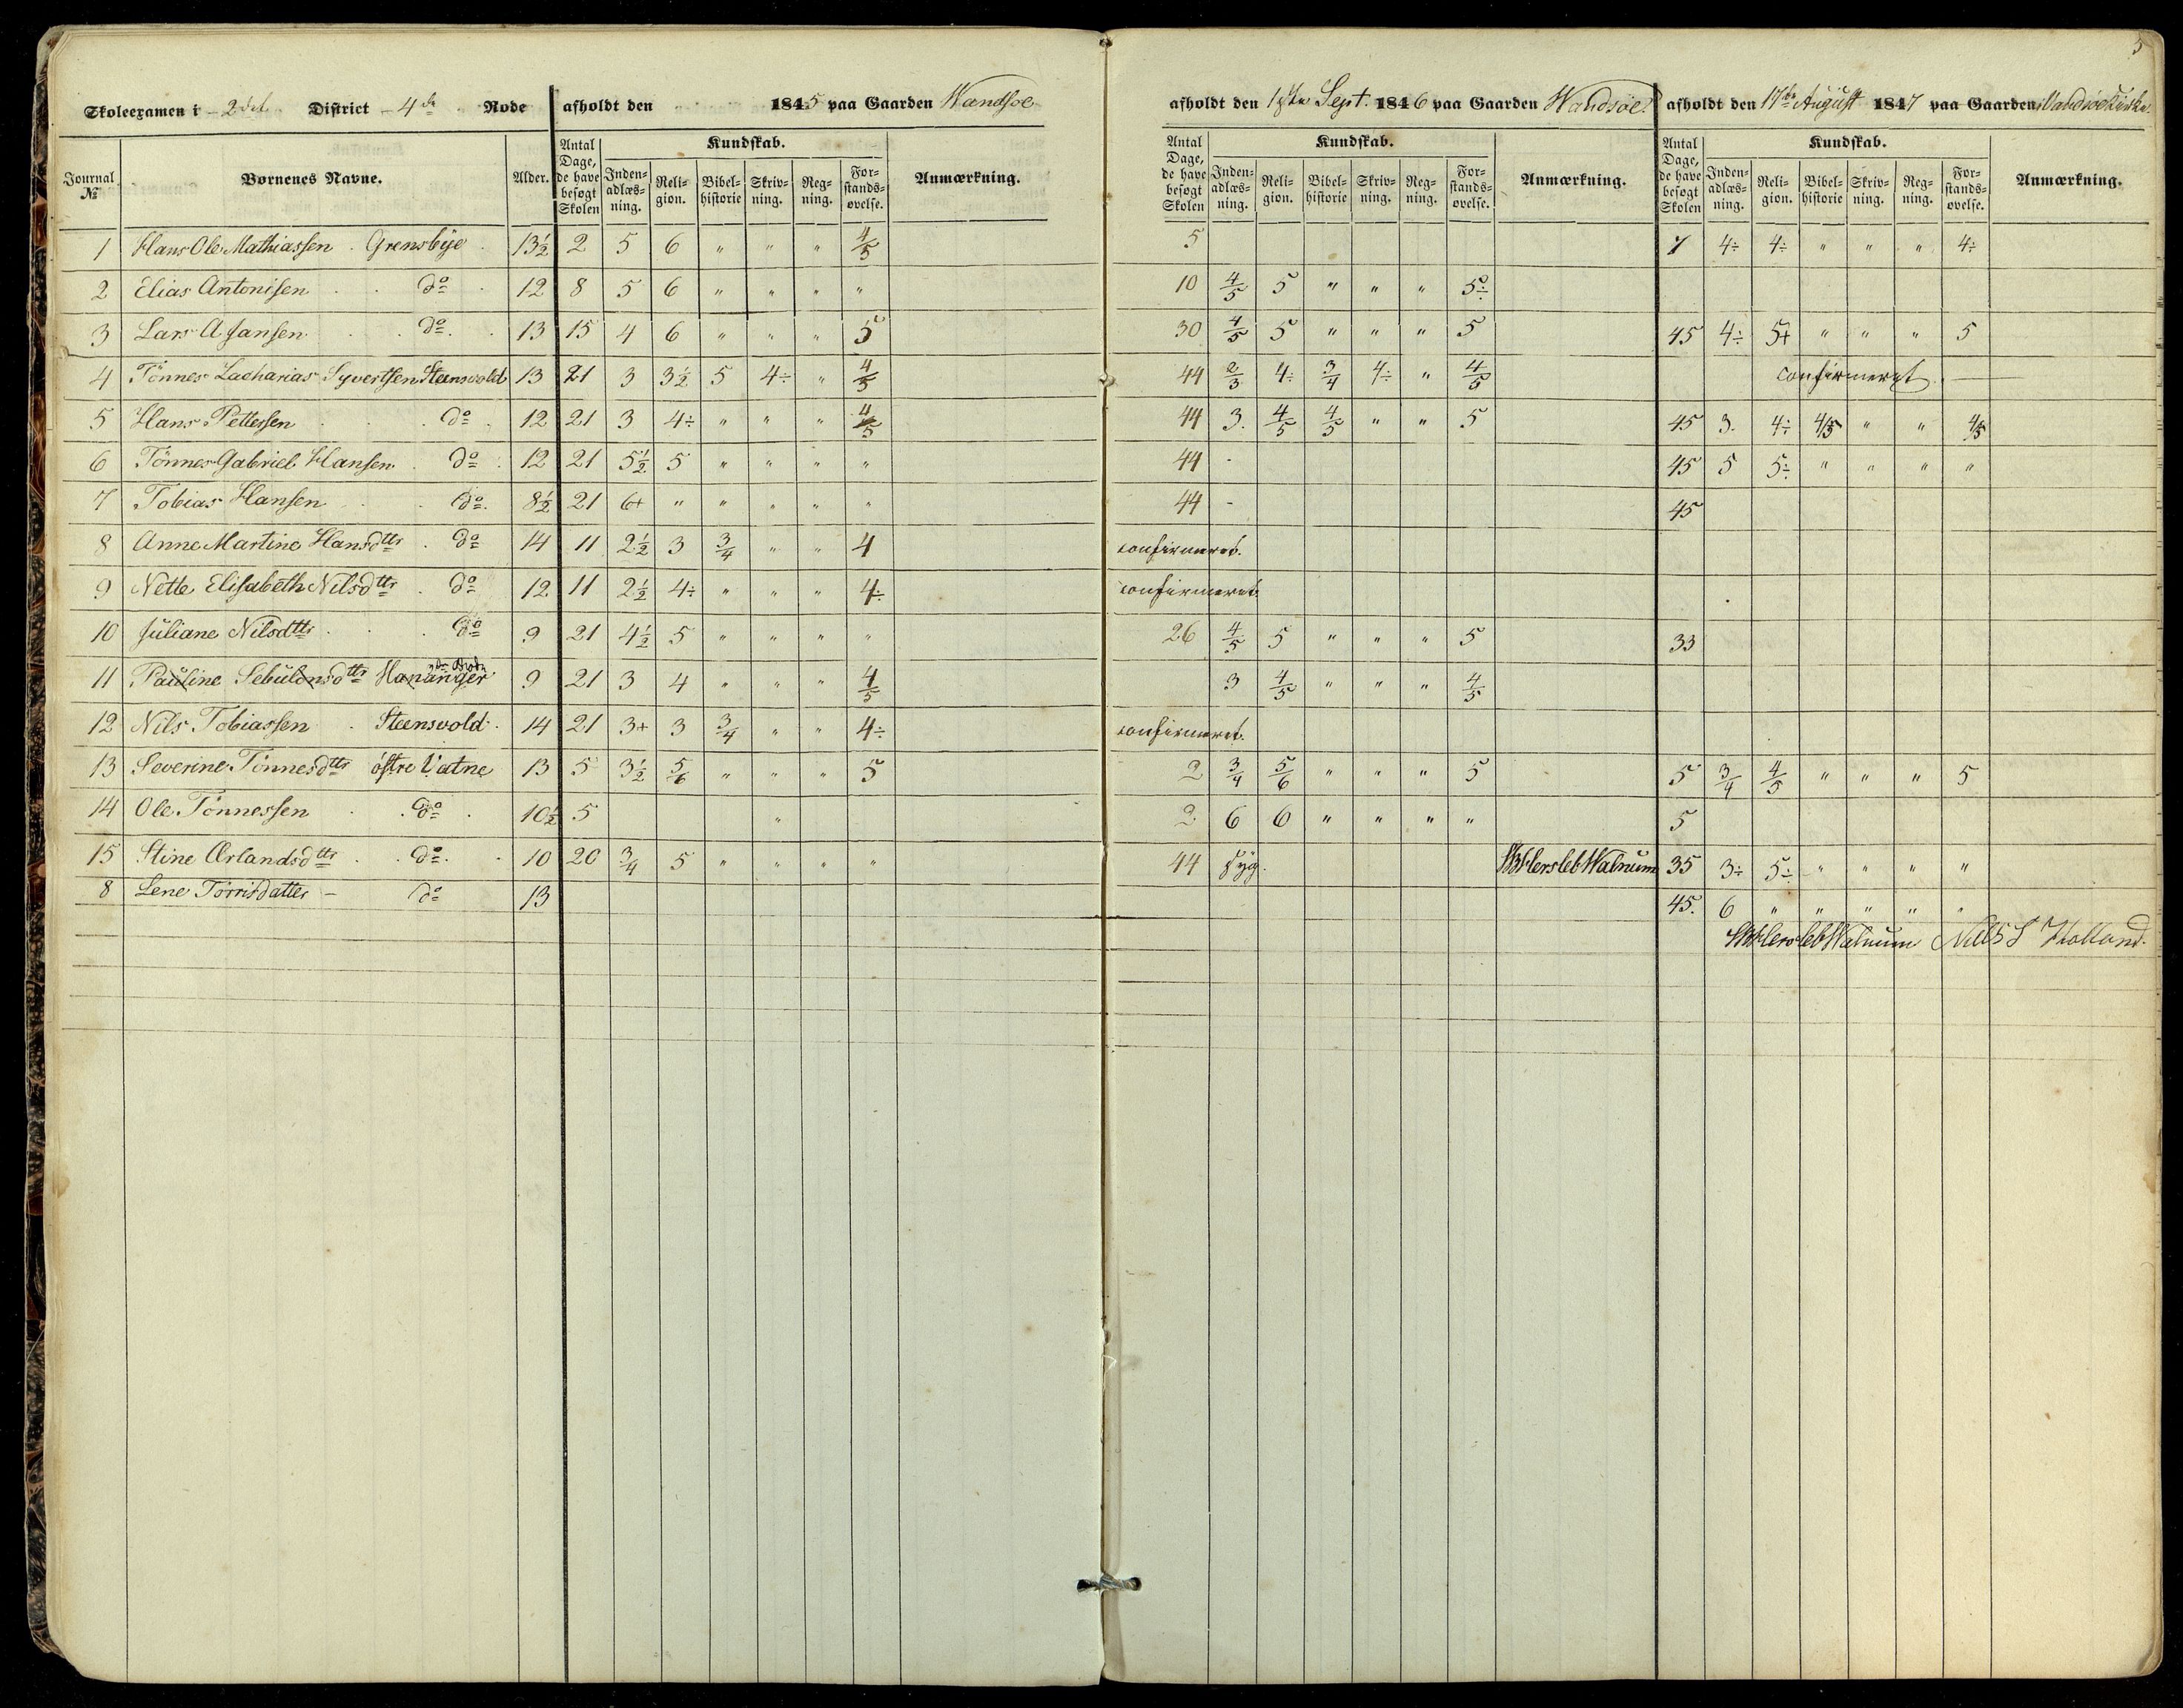 5
Skoleexamen i 2det District 4de Rode afholdt den 1845 paa Gaarden Wandsøe afholdt den Sept. 1846 paa Gaarden Wandsöe afholdt den 17de August 1847 paa Gaarden
Journal № Børnenes Navne. Alder. Antal Dage, de have besøgt Skolen Kundskab. Inden- adlæs- ning. Reli- gion. Bibel- historie Skriv- ning. Reg- ning. For- stands- øvelse. Anmærkning. Antal Dage, de have besøgt Skolen Kundskab. Inden- adlæs- ning. Reli- gion. Bibel- historie Skriv- ning. Reg- ning. For- stands- øvelse. Anmærkning. Antal Dage, de have besøgt Skolen Kundskab. Inden- adlæs- ning. Reli- gion. Bibel- historie Skriv- ning. Reg- ning. For- stands- øvelse. Anmærkning.
1 Hans Ole Mathiassen Grensbye 13½ 2 5 6 " " " 4/5 5 7 4÷ 4÷ " " " 4÷
2 Elias Antonisen do 12 8 5 6 " " " " 10 4/5 5 " " " 5÷
3 Lars A Jansen do 13 15 4 6 " " " 5 30 4/5 5 " " " 5 45 4÷ 5+ " " " 5
4 Tönnes Zacharias Syvertsen Steensvold 13 21 3 3½ 5 4÷ " 4/5 44 2/3 4÷ 3/4 4÷ " 4/5 confirmeret
5 Hans Pettersen do 12 21 3 4÷ " " " 4/5 44 3. 4/5 4/5 " " 5 45 3. 4÷ 4/5 " " 4/5
6 Tönnes Gabriel Hansen do 12 21 5½ 5 " " " " 44 - 45 5 5÷ " " " "
7 Tobias Hansen do 8½ 21 6+ " " " " " 44 - 45
8 Anne Martine Hansdttr do 14 11 2½ 3 3/4 " " 4 confirmeret.
9 Nette Elisabeth Nilsdttr do 12 11 2½ 4÷ " " " 4÷ confirmeret.
10 Juliane Nilsdttr do 9 21 4½ 5 " " " " 26 4/5 5 " " " 5 33
11 Pauline Sebulonsdttr Hananger 9 21 3 4 " " " 4/5 3 4/5 " " " 4/5
12 Nils Tobiassen Steensvold 14 21 3+ 3 3/4 " " 4÷ confirmeret.
13 Severine Tönnesdttr östre Vatne 13 5 3½ 5/6 " " " 5 2 3/4 5/6 " " " 5 5 3/4 4/5 " " " 5
14 Ole Tönnessen do 10½ 5 " 2 6 6 " " " " 5
15 Stine Ørlandsdttr do 10 20 3/4 5 " " " " 44 syg. Walnum 35 3÷ 5÷ " " " "
8 Lene Törrisdatter - do 13 45. 6 " " " " "
Walnum Nils S Holland.